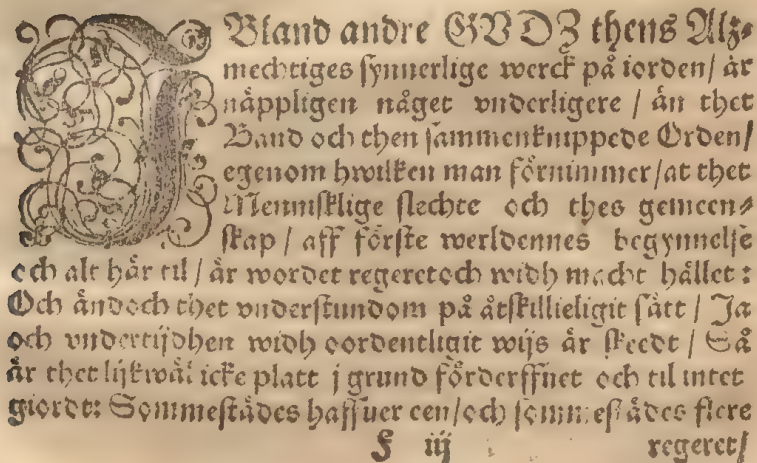 IBland andre GVDZ thens Alz⸗
mechtiges synnerlige werck på iorden/ är
näppligen någet vnderligere / än thet
Band och then sammenknippede Orden/
egenom hwilken man förnimmer/at thet
Menniſklige slechte och thes gemeen⸗
skap / aff förste werldennes begynnelse
och alt här til / är wordet regeret och widh macht hållet :
Och ändoch thet vnderstundom på åtskillieligit sätt / Ja
och vndertijdhen widh oordentligit wijs är skeedt / Så
är thet lijkwäl icke platt j grund förderffuet och til intet
giordt: Sommestädes haffuer een/och sommestädes flere
F iij regeret/